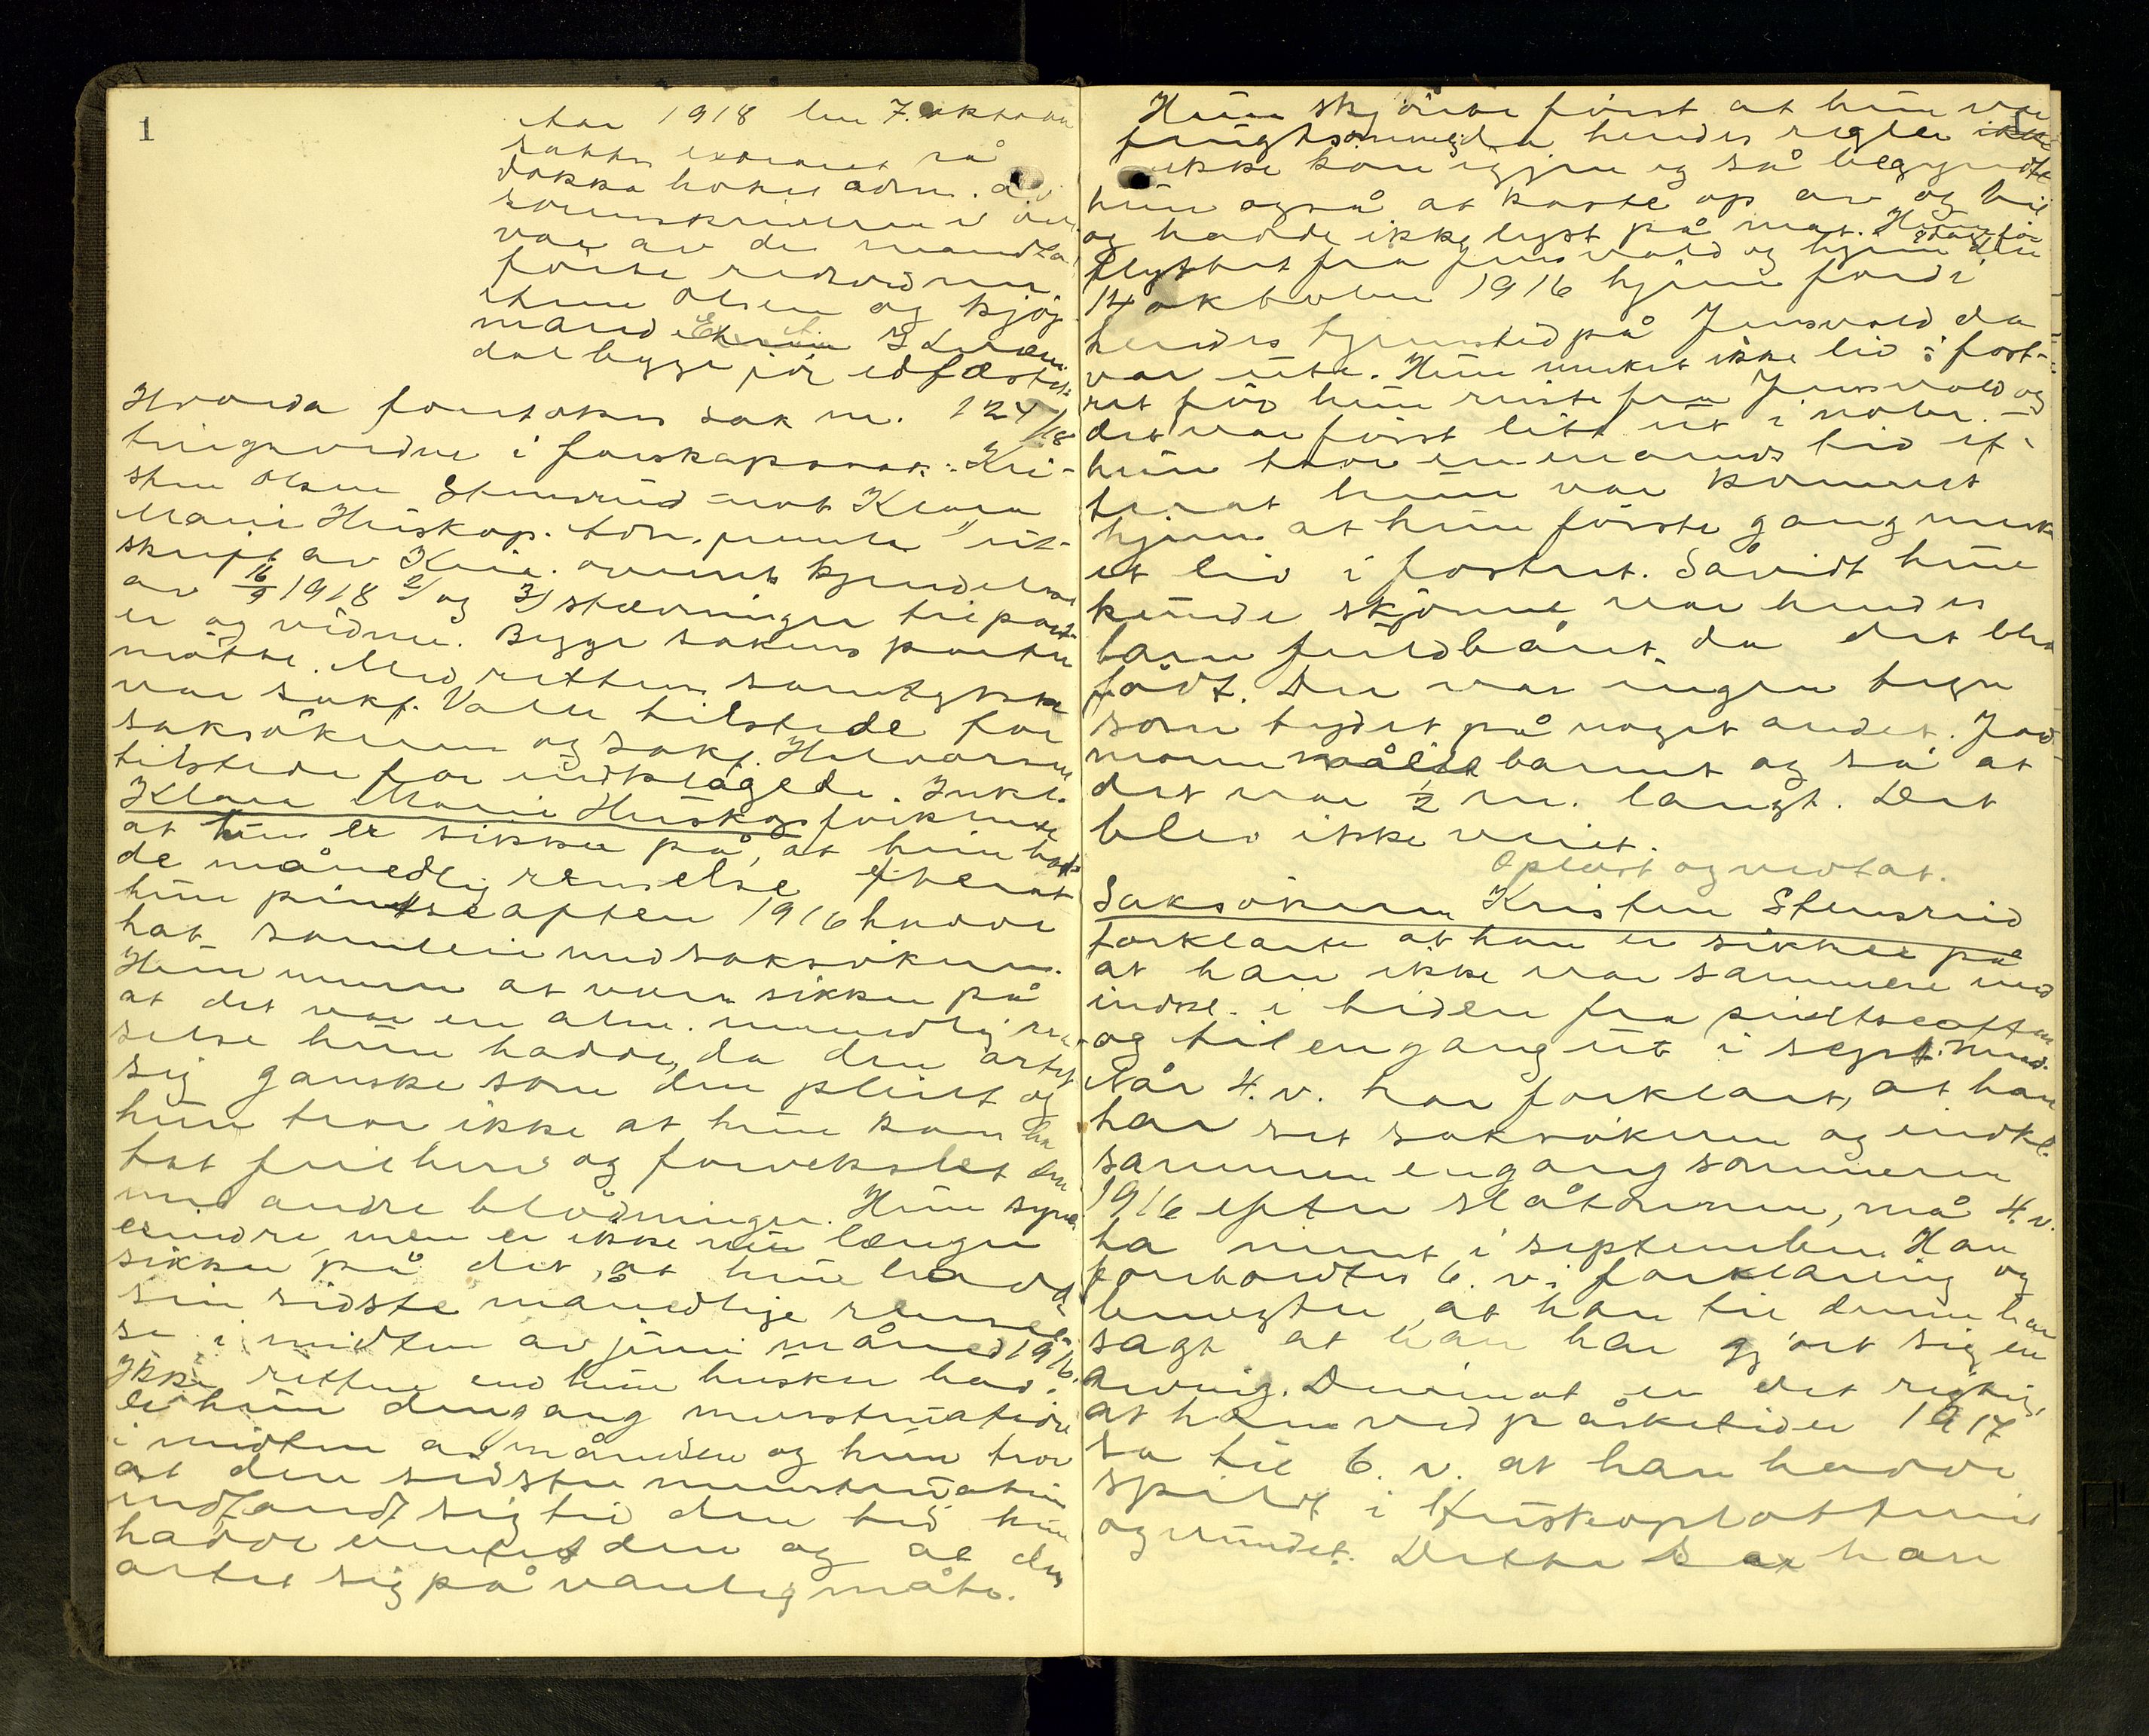 1
Aar 1918 den 7. oktober
sattes extraret på
Dokka hotel adm. av
sorenskriveren i
var av de
förte retsvidner
Olsen og kjøp-
mand
dal begge før edfæstet.
Hvorda foretokes sak nr. 124/18
tingsvidne i farskapssak: Kri-
sten Olsen Stensrud mot Klara
Marie Huskop. Adm. fremla 1/ ut-
skrift av Kria. overrets kjendelse
av 16/9 1918 2/ og 3/ stævninger til part-
er og vidner. Begge sakens parter
mötte. Med rettens samtykke
var sakf. Valle tilstede for
saksökeren og sakf. Halvorsen
tilstede for indklagede. Indkl.
Klara Marie Huskop forklarte
at hun er sikker på, at hun had-
de månedlig renselse efterat
hun pintseaften 1916 hadde
hat samleie med saksökeren.
Hun mener at være sikker på
at det var en alm. månedlig ren-
selse hun hadde, da den artet
sig ganske som den pleiet og
hun tror ikke at hun kan ha
tat feil herav og forvekslet den
med andre blödninger. Hun synes
erindre men er ikke nu længer
sikker på det, at hun hadde
sin sidste månedlige rensel-
se i midten av juni måned 1916.
Ikke rettere end hun husker had-
de hun dengang menstruation
i midten av måneden og hun tror
at den sidste menstruation
indfandt sig til den tid hun
hadde ventet den og at den
artet sig på vanlig måte.
Hun skjönte först at hun var
frugtsommelig da hendes regler
ikke kom igjen og så begyndte
hun også at kaste op av og til
og hadde ikke lyst på mat. Hun
flyttet fra Jensvold og hjem den
14 oktober 1916 hjem fordi
hendes tjenestetid på Jensvold da
var ute. Hun merket ikke liv i fost-
ret för hun reiste fra Jensvold og
det var först litt ut i novbr. –
hun tror en måneds tid ef-
terat hun var kommet
hjem at hun förste gang merk-
et liv i fostret. Såvidt hun
kunde skjönne var hendes
barn fuldbåret, da det blev
födt. Der var ingen tegn
som tydet på noget andet. Jord-
moren målte barnet og sa at
det var 1/2 m. langt. Det
blev ikke veiet.
Oplæst og vedtat.
Saksökeren Kristen Stensrud
forklarte at han er sikker på
at han ikke var sammen med
indkl. i tiden fra pintseaften
og til engang ut i sept. mnd.
Når 4. v. har forklart, at han
har set saksökeren og indkl.
sammen engang sommeren
1916 efter slåtonnen, må 4. v.
ha ment i september. Han
foreholdtes 6. v.s forklaring og
benegter, at han til denne har
sagt at han har gjort sig en
Derimot er det rigtig,
at han ved påsketider 1917
sa til 6. v. at han hadde
spildt i Huskoplotteriet
og vundet. Dette sa han